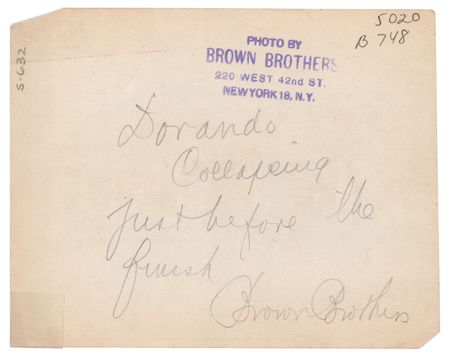 5020
B 748
PHOTO BY
BROWN BROTHERS
220 WEST 42nd ST.
NEW YORK 18, N.Y.
S-632
Dorando
Collapsing
just before the
finish
Brown Brothers